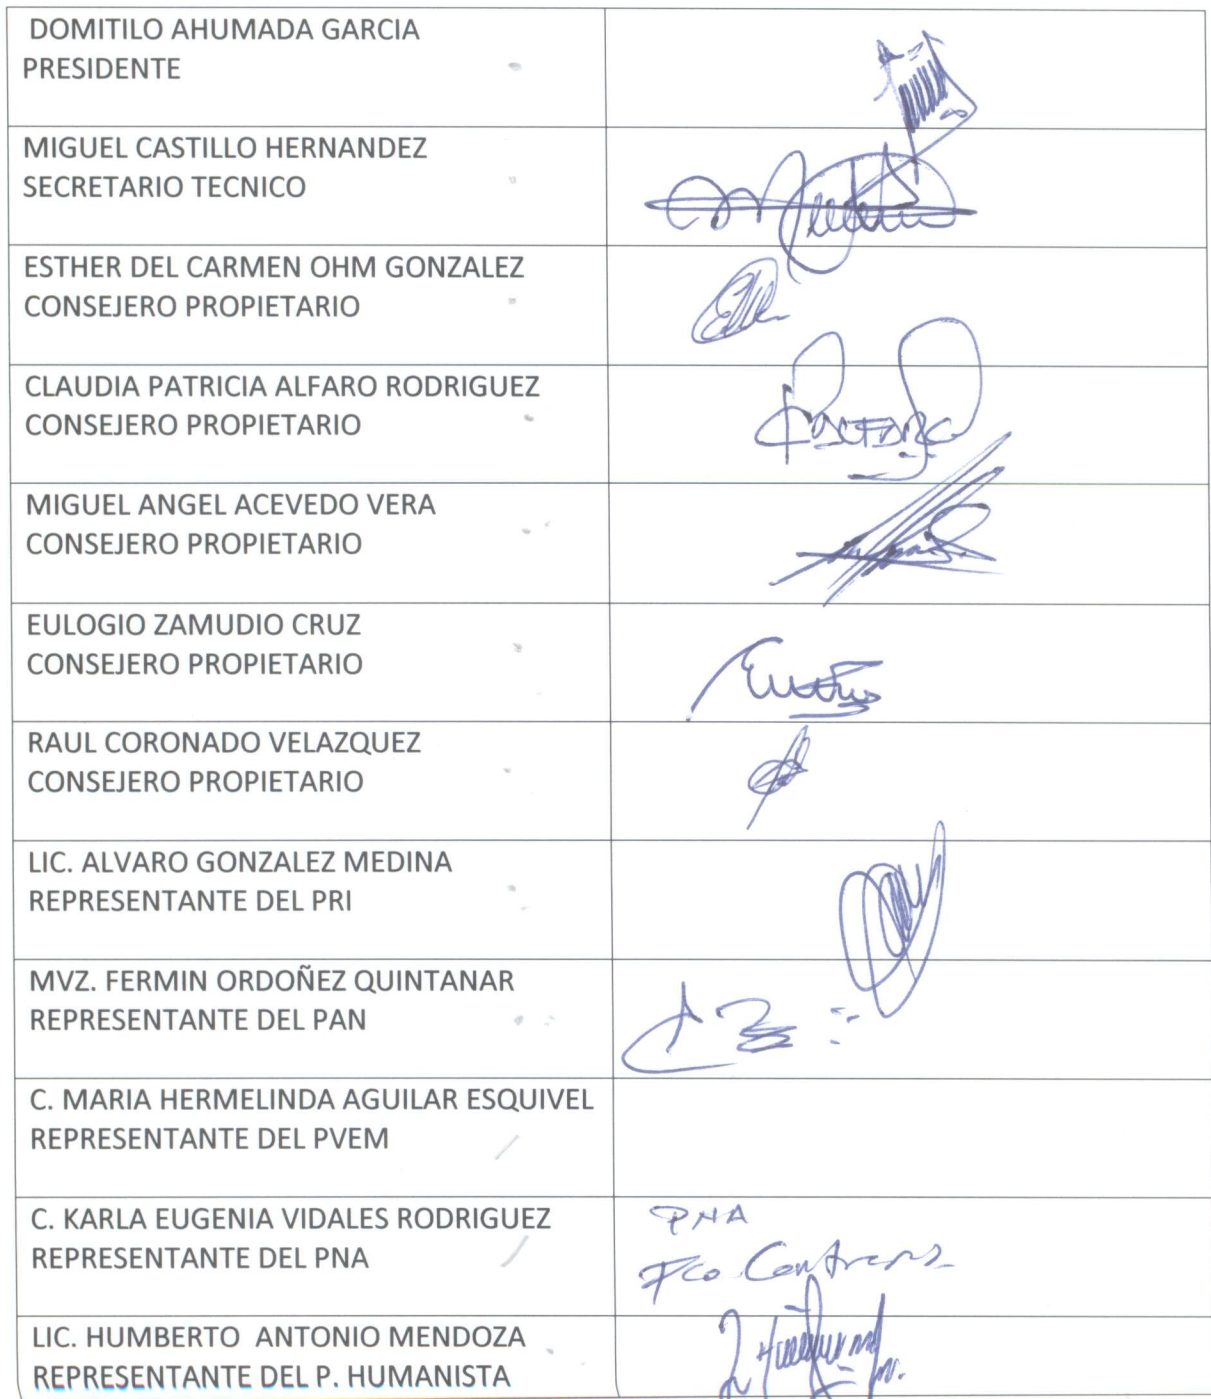 DOMITILO AHUMADA GARCIA
PRESIDENTE
MIGUEL CASTILLO HERNANDEZ
SECRETARIO TECNICO
ESTHER DEL CARMEN OHM GONZALEZ
CONSEJERO PROPIETARIO
CLAUDIA PATRICIA ALFARO RODRIGUEZ
CONSEJERO PROPIETARIO
MIGUEL ANGEL ACEVEDO VERA
CONSEJERO PROPIETARIO
EULOGIO ZAMUDIO CRUZ
CONSEJERO PROPIETARIO
RAUL CORONADO VELAZQUEZ
CONSEJERO PROPIETARIO
LIC. ALVARO GONZALEZ MEDINA
REPRESENTANTE DEL PRI
MVZ. FERMIN ORDOÑEZ QUINTANAR
REPRESENTANTE DEL PAN
C. MARIA HERMELINDA AGUILAR ESQUIVEL
REPRESENTANTE DEL PVEM
C. KARLA EUGENIA VIDALES RODRIGUEZ
REPRESENTANTE DEL PNA
PNA
Fco Contreras
LIC. HUMBERTO ANTONIO MENDOZA
REPRESENTANTE DEL P. HUMANISTA